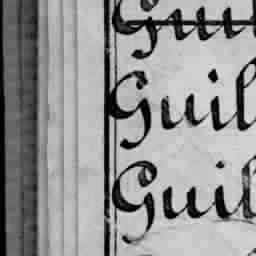 Gui
Guil
Guil